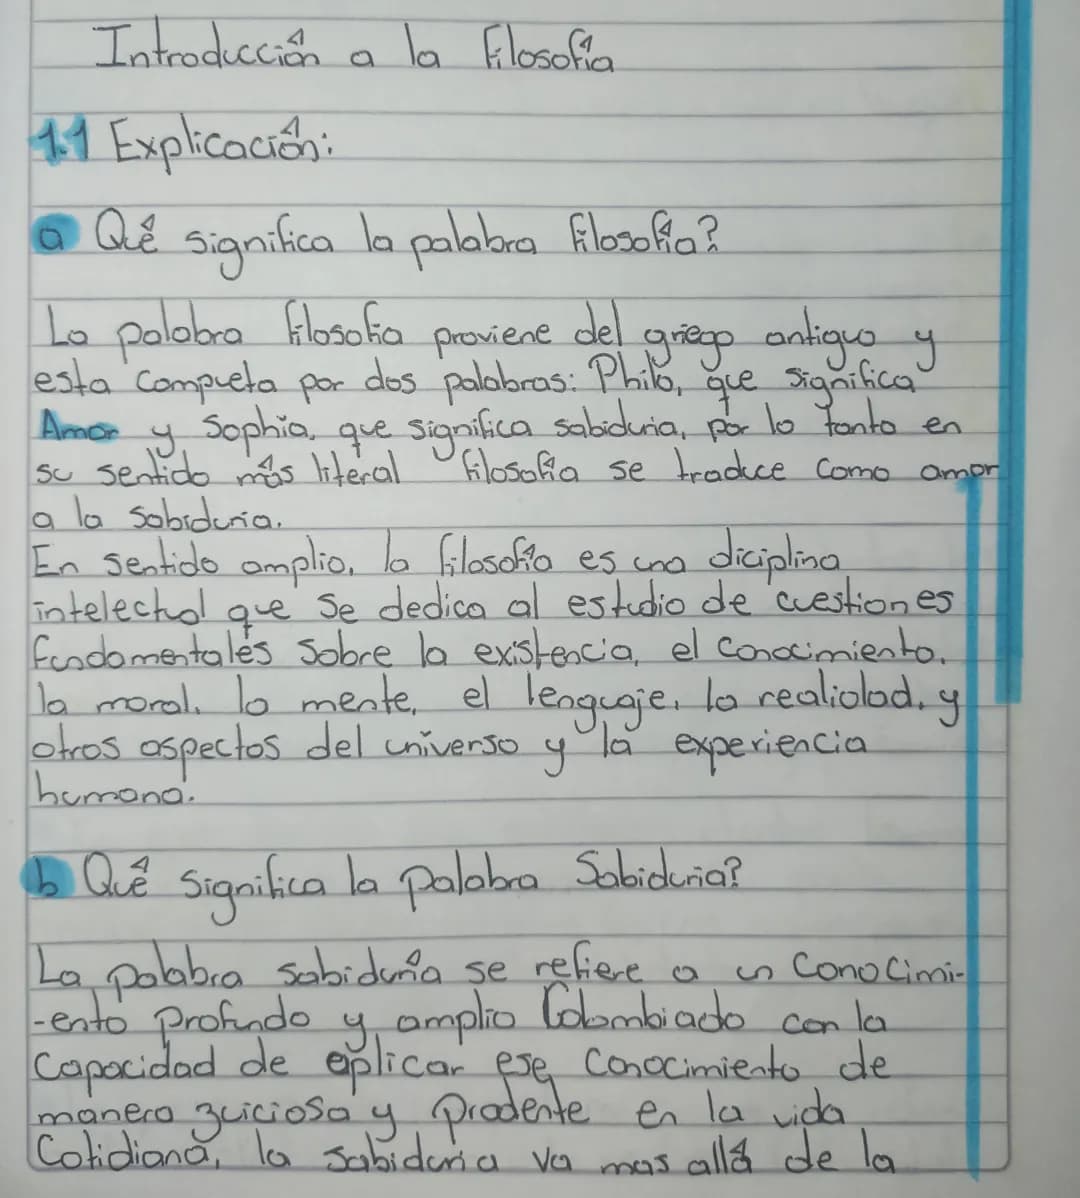 Introducción a la filosofía
1.1 Explicación:
a Qué significa la palabra filosofía?
La palabra filosofia proviene del griego antiguo y
esta compueta por dos palabras: Philo, que significa
Amor y Sophia, que significa sabiduria, por lo tanto en
su sentido más literal filosofia se traduce como amor
a la sabiduria.
En sentido amplio, la filosofía es una diciplina
intelectual que se dedica al estudio de cuestiones
fundamentales sobre la existencia, el conocimiento,
la moral, la mente, el lenguaje, la realidad, y
otros aspectos del universo y la experiencia
humana.
b Qué significa la palabra Sabiduria?
La palabra sabiduría se refiere a un conocimi-
-ento profundo y amplio Colombiado con la
capacidad de aplicar ese conocimiento de
manera juiciosa y prudente en la vida
Cotidiana, la sabiduria va mas allá de la